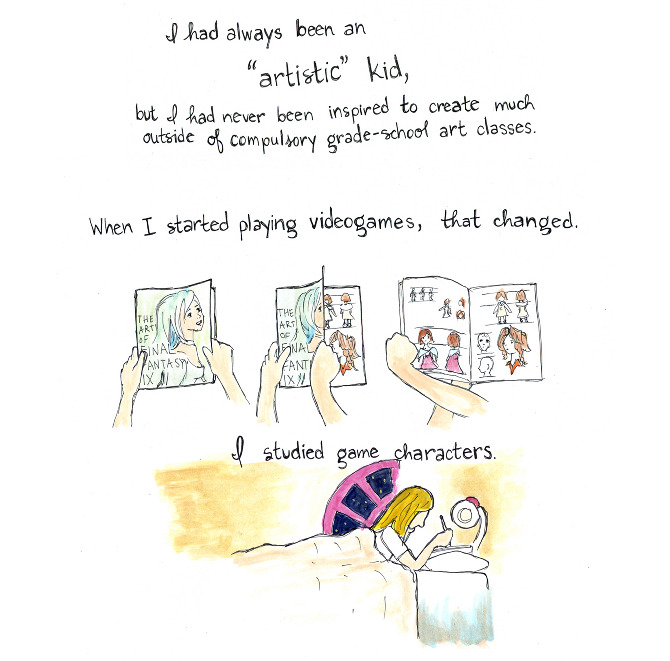 I had always been an
“artistic” kid,
but I had never been inspired to create much
outside of compulsory grade-school art classes.
When I started playing videogames, that changed.
THE
ART
OF
FINAL
FANTASY
IX
THE
ART
OF
FINAL
FANT
IX
I studied game characters.